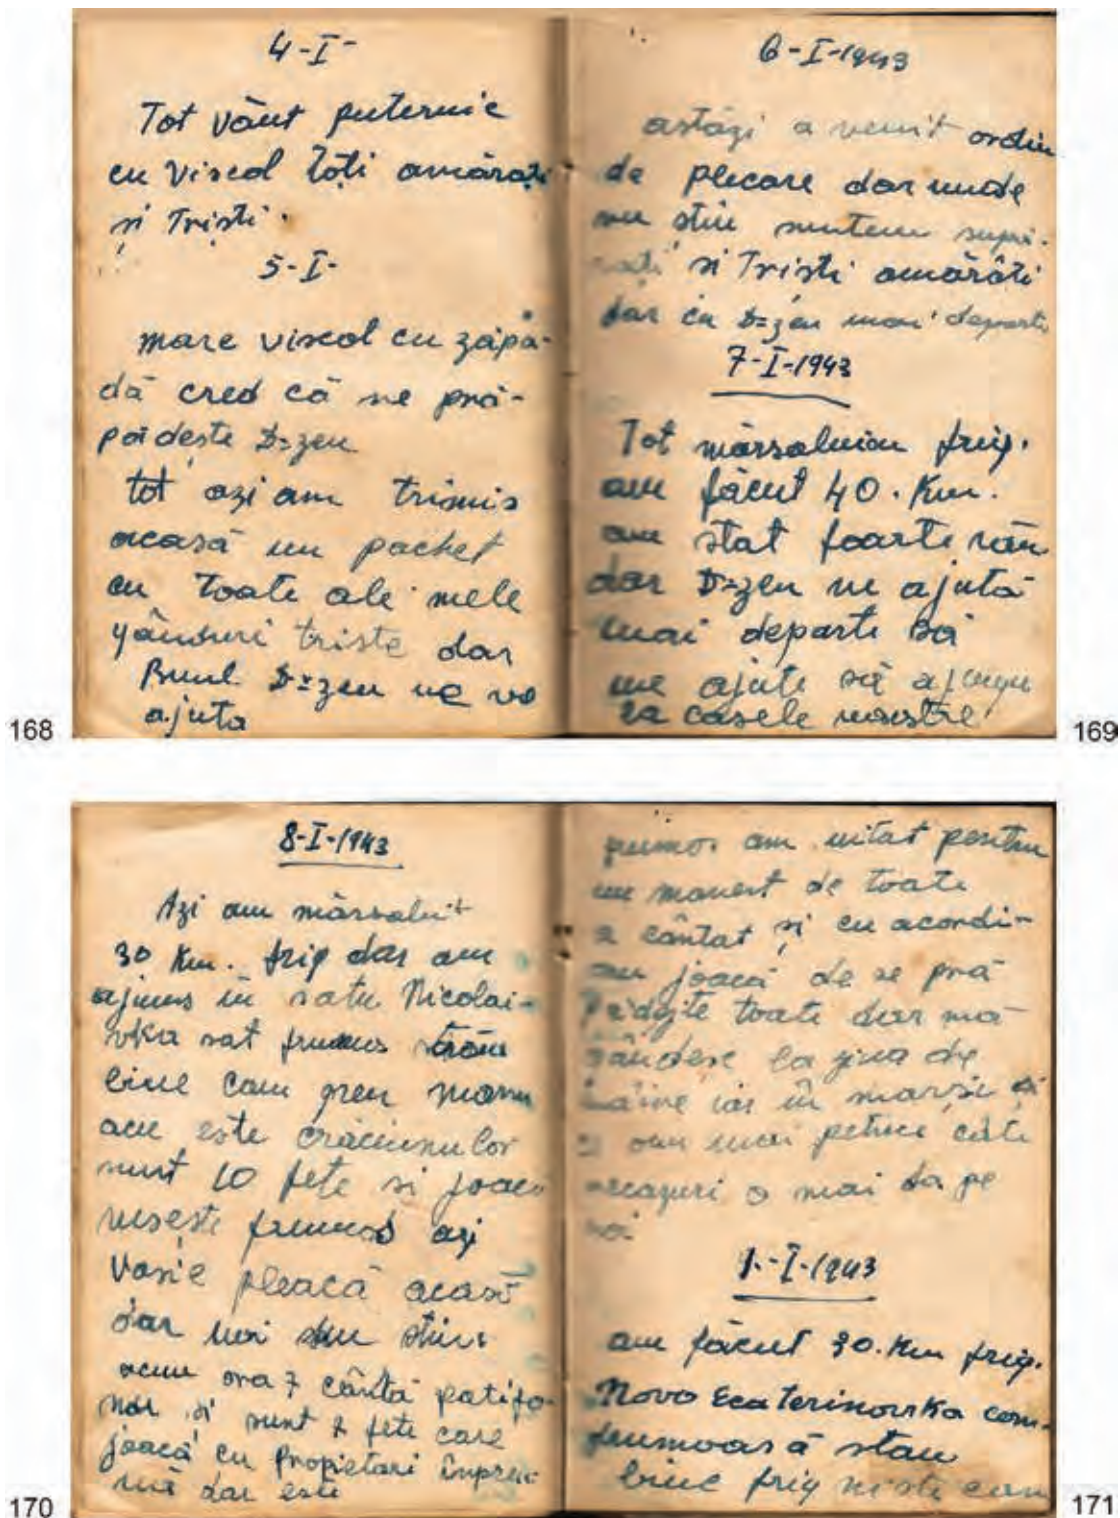 4-I-
Tot vânt puternic
cu viscol toți amărați
și Triști.
5-I-
mare viscol cu zăpa-
dă cred că ne pră-
pădește D=zeu
tot azi am trimis
acasă un pachet
cu toate ale mele
gânduri triste dar
Bunul D=zeu ne va
ajuta
168
6-I-1943
astăzi a venit ordin
de plecare dar unde
nu știu suntem supă-
rați si Triști amărâți
dar cu D=zeu mai departe
7-I-1943
Tot mărsaluim frig.
am făcut 40. Km.
am stat foarte rău
dar D=zeu ne ajută
mai departe să
ne ajute să ajungu
la casele noastre
169
8-I-1943
Azi am mărsaluit
30 Km. frig dar am
ajuns în satu Nicolai-
vka sat frumus stăm
bine cam greu
acu este crăciunu lor
sunt 10 fete si joacă
rusește frumos azi
Vasile pleacă acasă
dar noi nu știm
acum ora 7 cântă patifo-
nar și sunt 7 fete care
joacă cu Propietari înpreu-
nă dar este
170
frumos am uitat pentru
un moment de toate
a cântat și cu acordi-
on joacă de se pră
pădește toate dar mă
gândesc la ziua de
mâine iar în marși
mai petrice câte
necazuri o mai da pe
noi
1.-I-1943
am făcut 30. Km frig.
Novo Ecaterinovka com.
frumoasă stau
bine frig niste cam
171